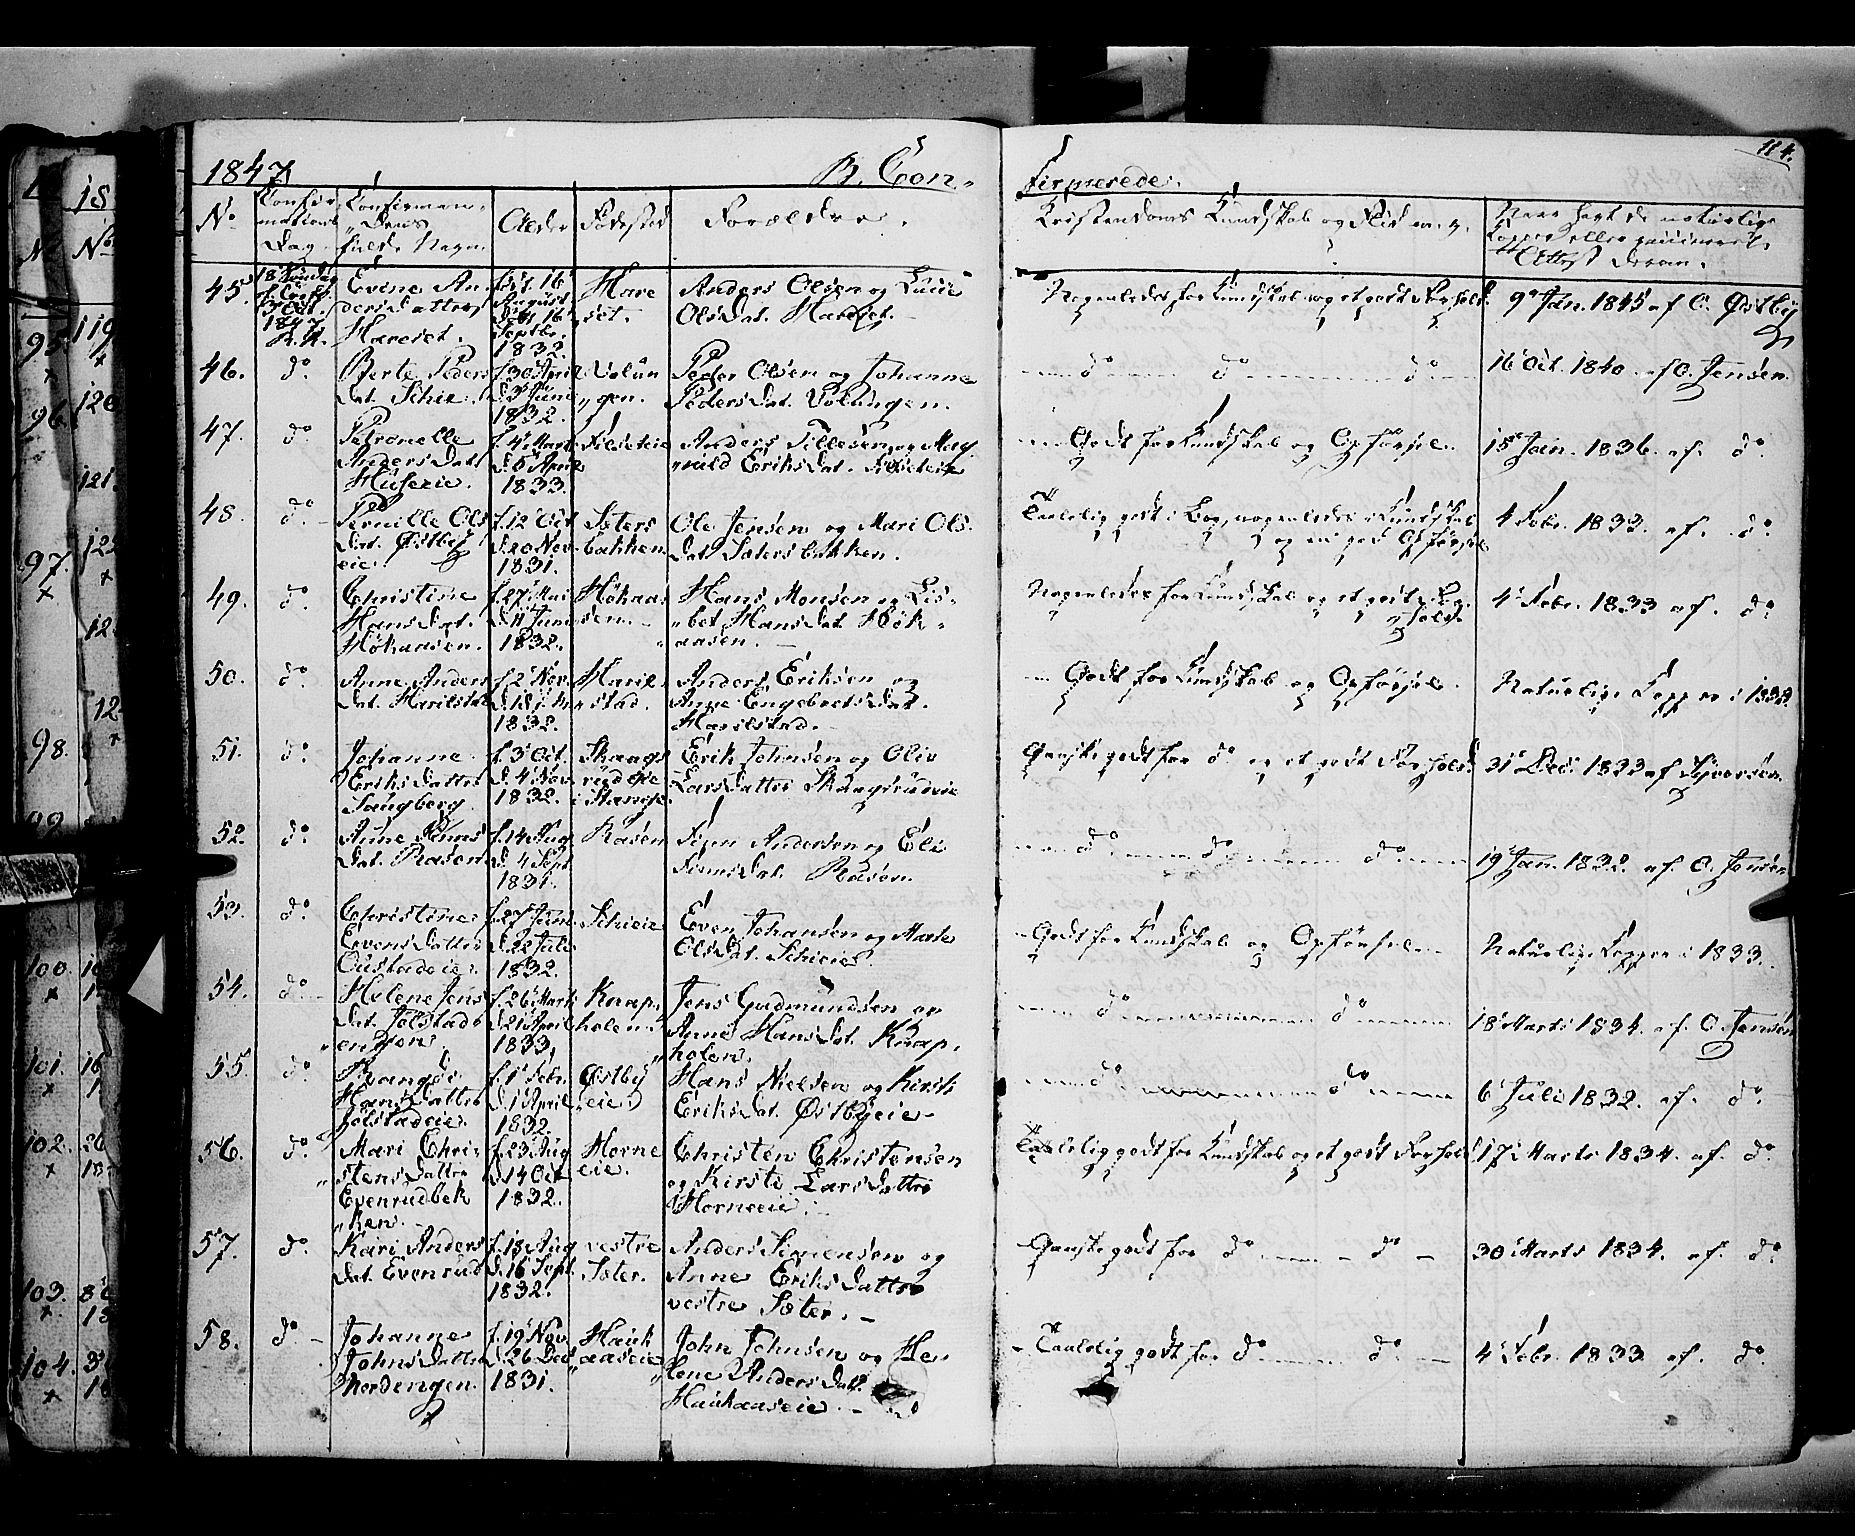 1847. B. Con-
firmerede.
114.
No
Confir
mations
Dag.
Confirman-
dens
fulde Navn.
Alder
Fødested
Forældre.
Kristendoms Kundskab og Flid m. v.
Naar havt de naturlige
Kopper eller vaccineret.
Attest derom.
45. 18 Søndag
3 Oct.
1847
Evine An
dersdatter
Hareset.
August
Septbr.
1832.
Hare
set.
Anders Olsen og
Olsdat. Hareset.
Nogenledes for Kundskab og et godt Forhold.
9 Jan. 1845 af O. Østby
46. do.
Berte Peders
dat. Schie.
f. 30 April
d. 3 Juni
1832.
Volun
gen.
Peder Olsen og Johanne
Pedersdat. Volungen.
do do do
16 Oct. 1840 af O. Jensen
47. do.
Petronelle
Andersdat.
Huseeie.
f. 4 Marts
d. 5 April
1833.
Anders Tillesen og Mag
nild Eriksdat.
Godt for Kundskab og Opførsel.
15 Jan. 1836. af. do
48. do.
Pernille Ols
dat. Østby
eie.
f. 12 Oct
d. 20 Nov.
1831.
Sæters
bakken
Ole Jensen og Mari Ols
dat. Sætersbakken.
Taalelig godt i Bog, nogenledes i Kundskab
og en god Opførsel
4 Febr. 1833. af. do
49. do.
Christine
Hansdat.
Høkaasen.
f. 27 Mai
d. 11 Juni
1832.
Høkaa
sen.
Hans Monsen og Lis-
bet Hansdat Høk-
aasen.
Nogenledes for Kundskab og et godt For-
hold.
4 Febr. 1833 af. do
50. do.
Anne Anders
dat. Harilstad
f. 2 Nov.
1832.
Haril
stad.
Anders Eriksen og
Anne Engebretsdat.
Harilstad.
Godt for Kundskab og Opførsel.
Naturlige Kopper i 1833.
51. do.
Johanne
Eriksdatter
Saugberg
f. 3 Oct.
d. 4 Nov.
1832.
Skaugs
rudeie
i Stange
Erik Johnsen og Oliv
Larsdatter Skaugsrudeie
Ganske godt for do og et godt Forhold
31 Dec. 1833 af Syversen
52. do.
Anne Simens
dat. Raasen
f. 14 Aug
d. 4 Sept
1831.
Raasen
Simen Andersen og Eli
Simensdat. Raasen.
do do do
19 Jan. 1832. af. O. Jensen
53. do.
Christine
Evensdatter
Oustadeie.
f. 27 Juni
d. 22 Juli
1832.
Schieeie
Even Johansen og Marte
Olsdat. Schieeie.
Godt for Kundskab og Opførsel.
Naturlige Kopper i 1833.
54. do.
Helene Jens
dat. Jølstads
engen.
f. 26 Marts
d. 21 April
1833.
Knap
holen
Jens Gudmundsen og
Anne Hansdat. Knap,
holen.
do do
18 Marts 1834. af. O. Jensen
55. do.
Rangdi
Hansdatter
Jølstadeie.
f. 1 Febr.
d. 1 April
1832.
Østby
eie
Hans Nielsen og Kirsti
Eriksdat. Østbyeie
do do
6 Juli 1832. af. do
56. do.
Mari Chri-
stensdatter
Evenrudbak
ken.
f. 23 Aug
d. 14 Oct
1832.
Horne
eie.
Christen Christensen
og Kirsti Larsdatter
Horneeie.
Taalelig godt for Kundskab og et godt Forhold.
17 Marts 1834. af. do.
57. do.
Kari Anders
dat. Evenrud
f. 18 Aug
d. 16 Sept.
1832.
vestre
Sæter.
Anders Simensen og
Anne Eriksdatter
vestre Sæter.
Ganske godt for do do
30 Marts 1834. af. do
58. do
Johanne
Johnsdatter
Nordengen.
f. 19 Nov.
d. 26 Dec
1831.
Hauk
aaseie
John Johnsen og He-
lene Andersdat.
Haukaaseie.
Taalelig godt for do do
4 Febr. 1833. af. do.